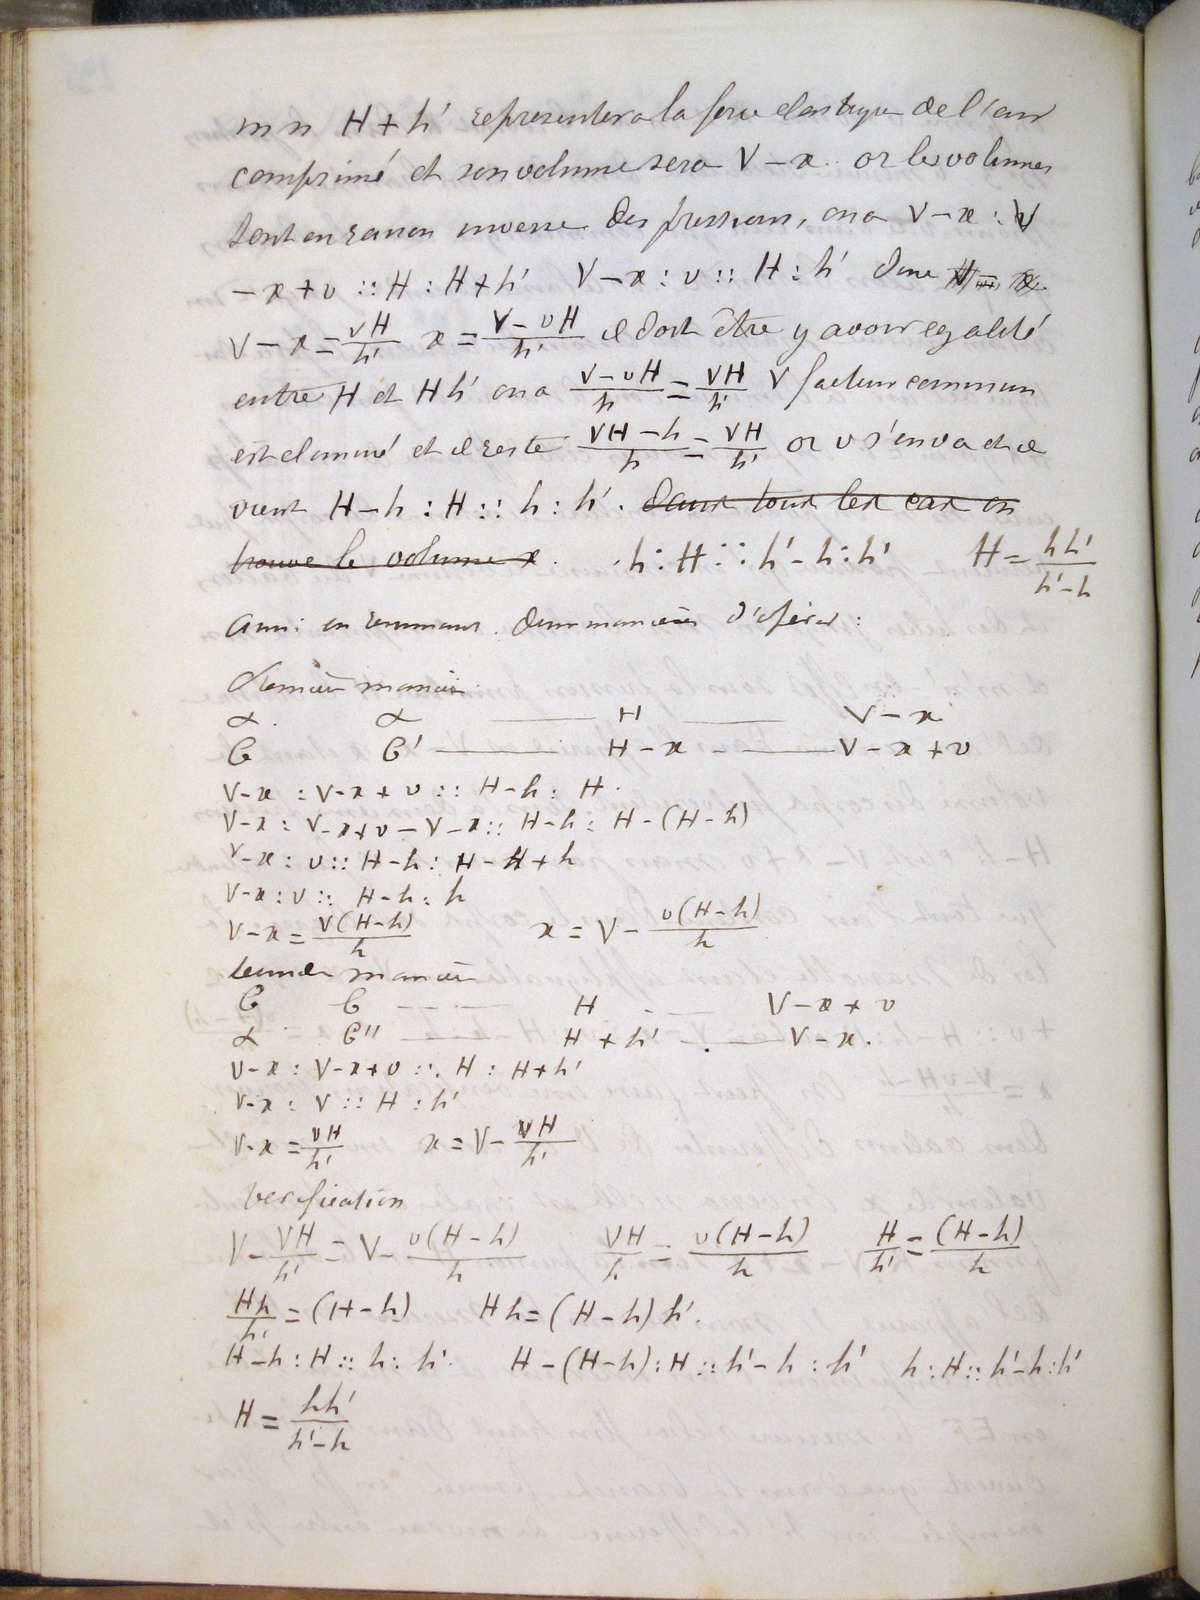 mn H + h' representera la force elastique de l'air
comprimé et son volume sera V - x. or les volumes
sont en raison inverse des pressions, on a V - x : V
- x + v :: H : H + h' V - x : v :: H : h' donc
V - x = vH/h' x = V - vH/h' il doit être y avoir egalité
entre H et H h' on a V - vH/h = VH/h' V facteur commun
est eliminé et il reste VH - h/h = VH/h' or v s'en va et il
vient H - h : H :: h : h'. dans tous les cas on
trouve le volume x. h : H :: h' - h : h' H = hh'/h'-h
Ainsi en resumant. deux manieres d'opérer :
Premiere maniere
α. α —— H —— V - x
C C' —— H - x —— V - x + v
V - x : V - x + v :: H - h : H.
V - x : V - x + v - V - x :: H - h : H - (H - h)
V - x : v :: H - h : H - H + h
V - x : v :: H - h : h
V - x = V(H - h)/h x = V - v(H - h)/h
seconde maniere
C C —— H —— V - x + v
α C'' —— H + h' —— V - x.
v - x : V - x + v :: H : H + h'
V - x : V :: H : h'
V - x = vH/h' x = V - vH/h'
verification
V - VH/h' = V - v(H - h)/h VH/h = v(H - h)/h H/h' = (H - h)/h
Hh/h' = (H - h) Hh = (H - h) h'.
H - h : H :: h : h'. H - (H - h) : H :: h' - h : h' h : H :: h' - h : h'
H = hh'/h'-h